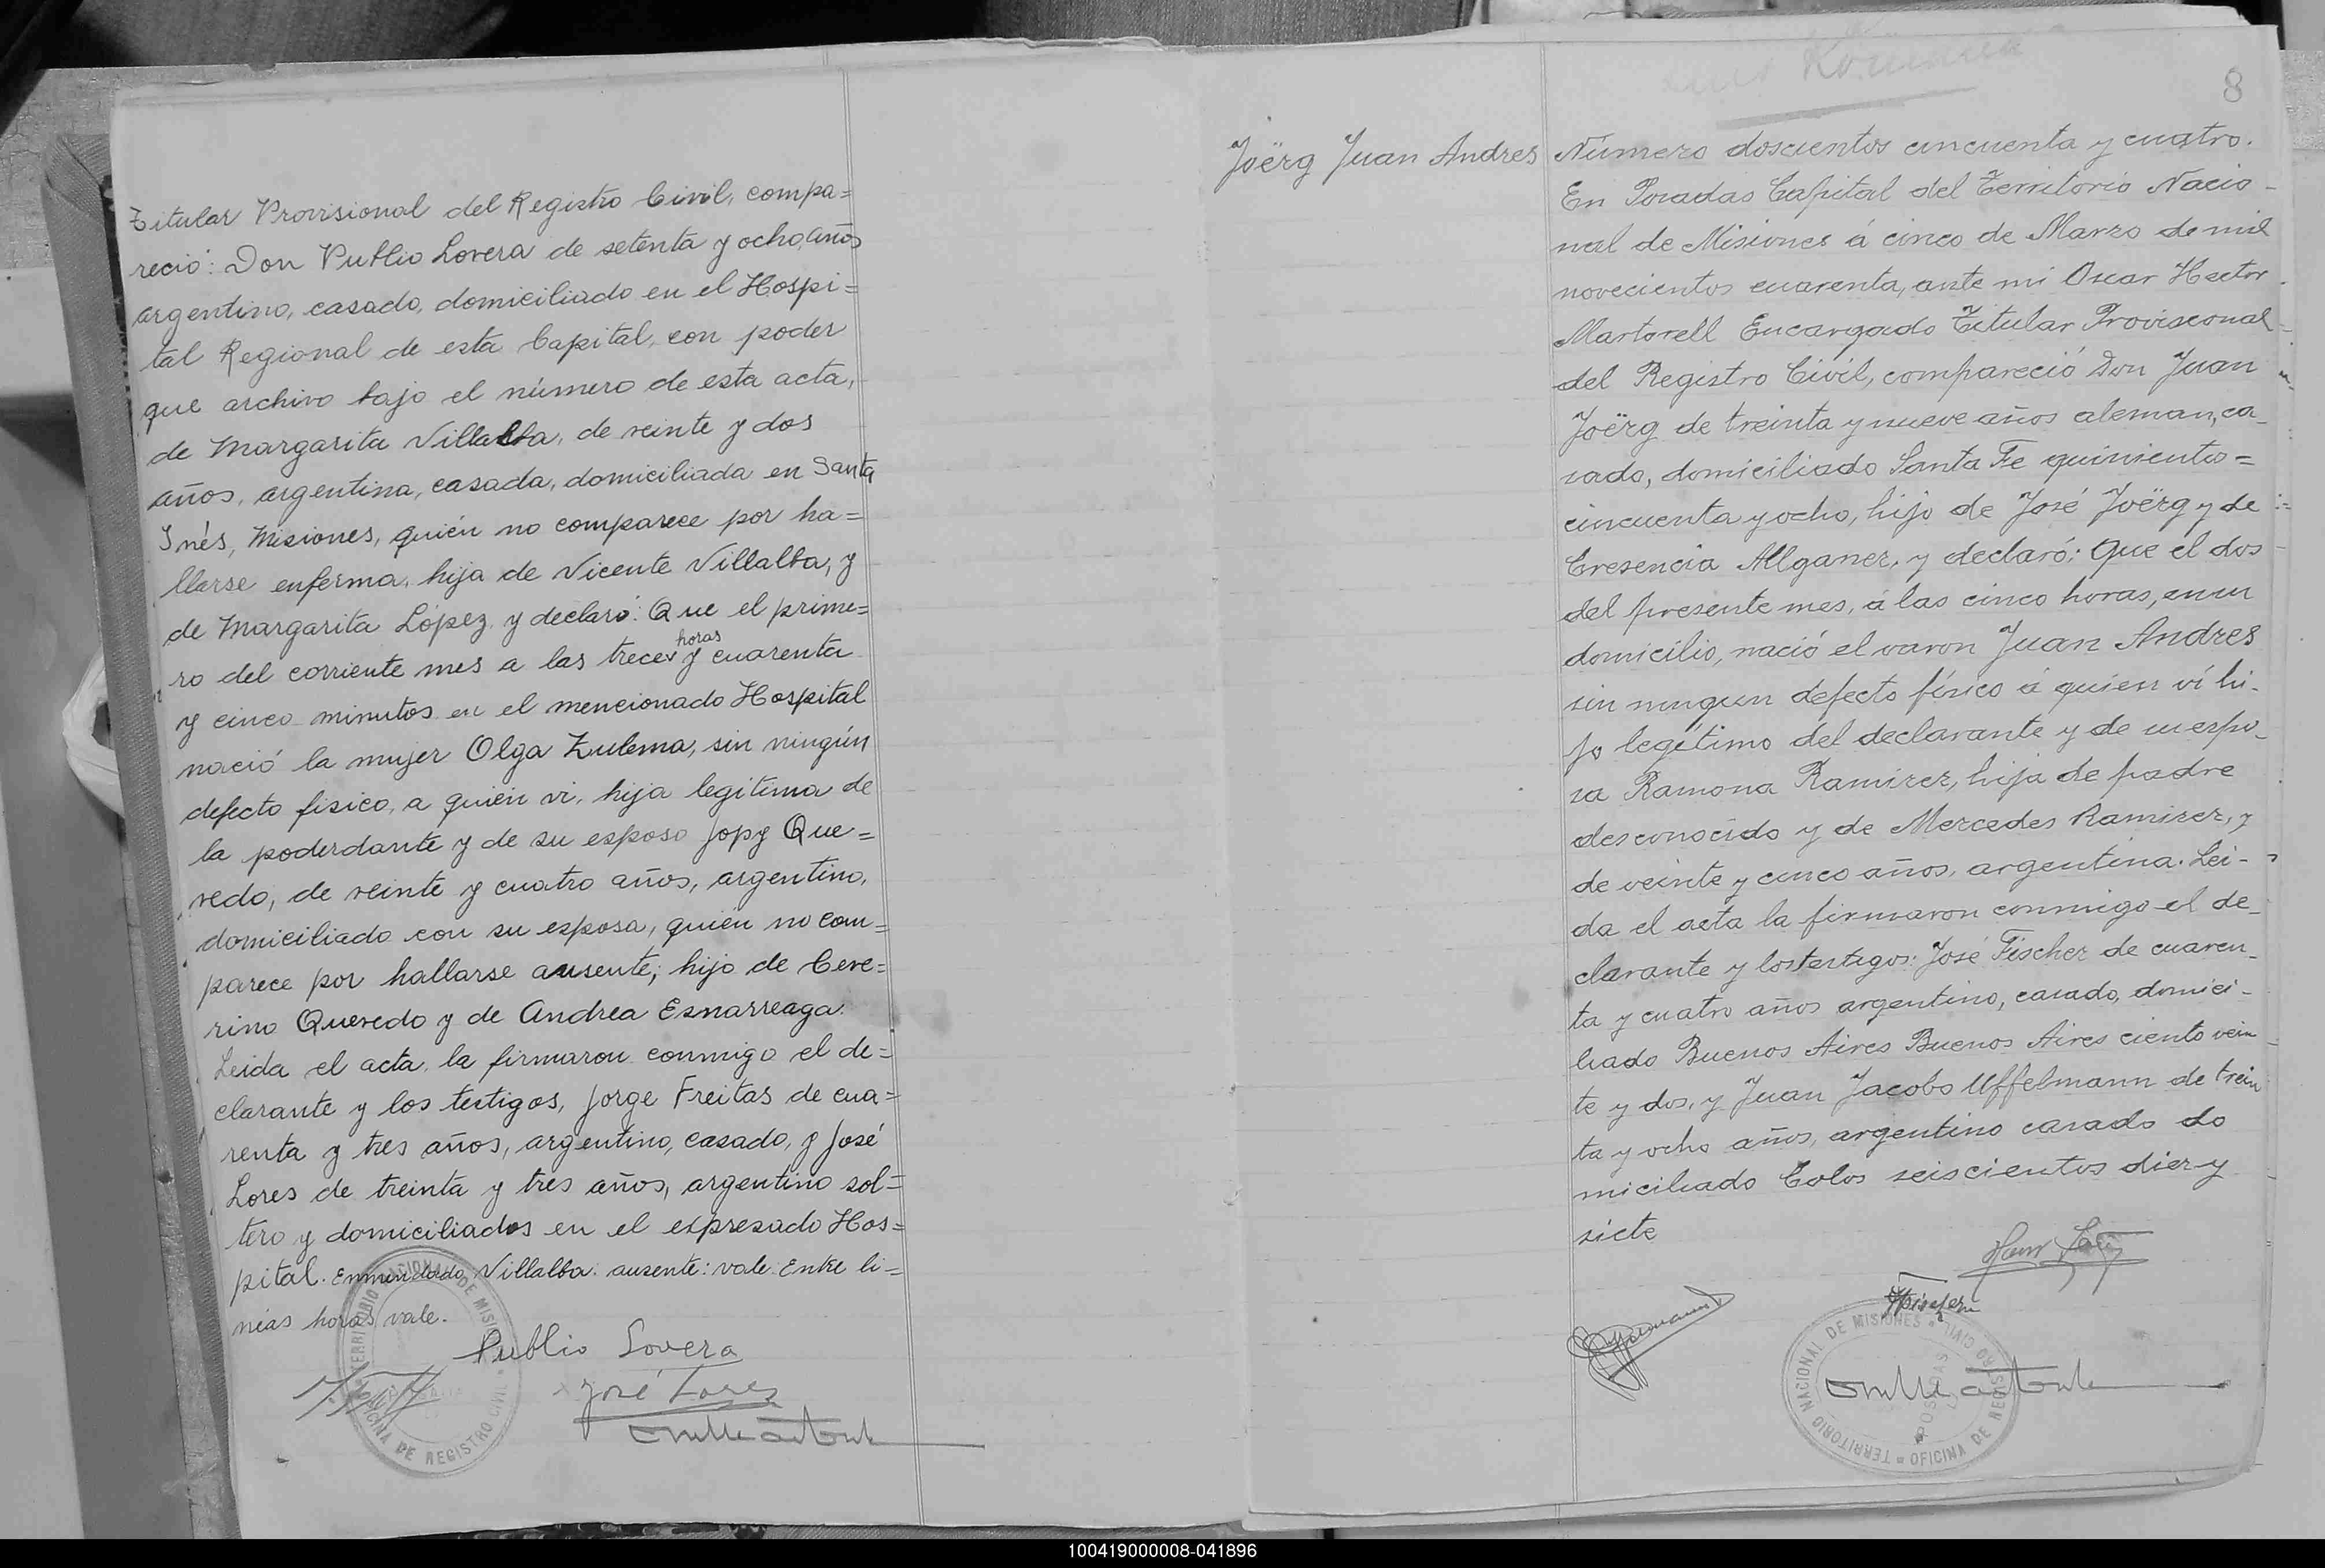 Titular Provisional del Registro Civil, compa=
reció: Don Publio Lovera de setenta y ocho años
argentino, casado, domiciliado en el Hospi=
tal Regional de esta Capital, con poder
que archivo bajo el número de esta acta,
de Margarita Villalba, de veinte y dos
años, argentina, casada, domiciliada en Santa
Inés, Misiones, quién no comparece por ha=
llarse enferma, hija de Vicente Villalba, y
de Margarita López y declaró: Que el prime=
horas
ro del corriente mes a las trece y cuarenta
y cinco minutos en el mencionado Hospital
nació la mujer Olga Zulema, sin ningún
defecto fisico, a quién vi, hija legitima de
la poderdante y de su esposo Jopy Que=
vedo, de veinte y cuatro años, argentino,
domiciliado con su esposa, quién no com=
parece por hallarse ausente, hijo de Ceve=
rino Quevedo y de Andrea Esnarreaga.
Leida el acta, la firmaron conmigo el de=
clarante y los testigos, Jorge Freitas de cua=
renta y tres años, argentino, casado, y José
Lores de treinta y tres años, argentino sol=
tero y domiciliados en el expresado Hos=
pital. Enmendado Villalba: ausente: vale. Entre li=
neas horas vale.
Publio Lovera
José Lores
TERRITORIO NACIONAL DE MISIONES
OFICINA DE REGISTRO CIVIL
8
Joërg Juan Andres
Número doscientos cincuenta y cuatro.
En Posadas Capital del Territorio Nacio-
nal de Misiones á cinco de Marzo de mil
novecientos cuarenta, ante mi Oscar Hector
Martorell Encargado Titular Provisional
del Registro Civil, compareció Don Juan
Joërg de treinta y nueve años aleman, ca-
sado, domiciliado Santa Fe quinientos=
cincuenta y ocho, hijo de José Joërg y de
Cresencia Allganer, y declaró: Que el dos
del presente mes, á las cinco horas, en su
domicilio, nació el varon Juan Andres
sin ningun defecto físico á quien ví hi-
jo legítimo del declarante y de su espo-
sa Ramona Ramirez, hija de padre
desconocido y de Mercedes Ramirez, y
de veinte y cinco años, argentina. Lei-
da el acta la firmaron conmigo el de-
clarante y los testigos: José Fischer de cuaren-
ta y cuatro años argentino, casado, domici-
liado Buenos Aires Buenos Aires ciento vein
te y dos, y Juan Jacobo Uffelmann de trein
ta y ocho años, argentino casado do
miciliado Colos seiscientos diez y
siete
TERRITORIO NACIONAL DE MISIONES
OFICINA DE REGISTRO CIVIL
POSADAS
100419000008-041896